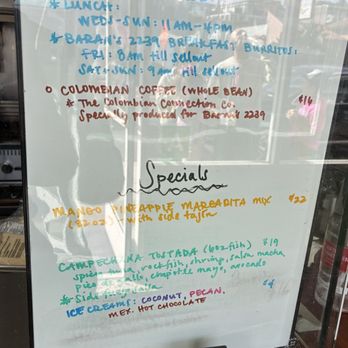 * LUNCH:
WEDS-SUN: 11AM-4PM
* BARAN'S 2239 BREAKFAST BURRITOS:
FRI: 8am till sellout
SAT-SUN: 9am till sellout
o COLOMBIAN COFFEE (WHOLE BEAN) $16
* The Colombian Connection Co.
Specially produced for Baran's 2239
Specials
MANGO PINEAPPLE MARGARITA MIX $22
(32oz) - with side tajin
CAMPECHANA TOSTADA (6oz fish) $19
spicy tuna, rockfish, shrimp, salsa macha,
pico de gallo, chipotle mayo, avocado
* Side
ICE CREAMS: COCONUT, PECAN,
MEX. HOT CHOCOLATE